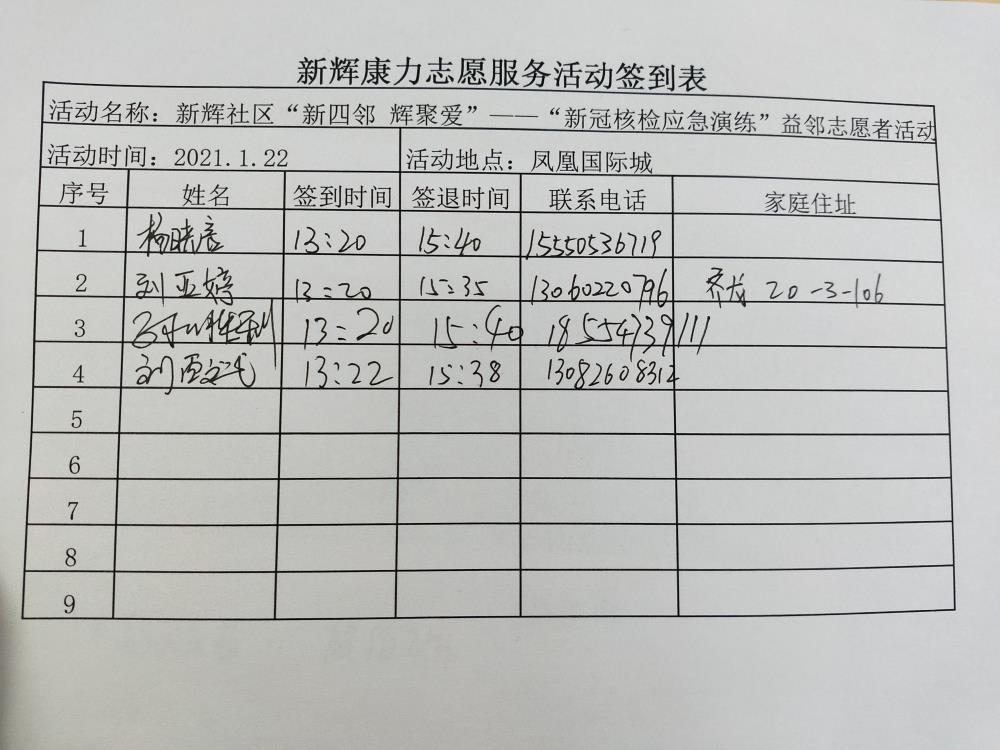 新辉康力志愿服务活动签到表
活动名称：新辉社区“新四邻 辉聚爱”——“新冠核检应急演练”益邻志愿者活动
活动时间：2021.1.22 活动地点：凤凰国际城
序号 姓名 签到时间 签退时间 联系电话 家庭住址
1 杨晓彦 13:20 15:40 15550536719
2 刘亚婷 13:20 15:35 13060220796 20-3-106
3 13:20 15:40 18554739111
4 刘 13:22 15:38 13082608312
5
6
7
8
9